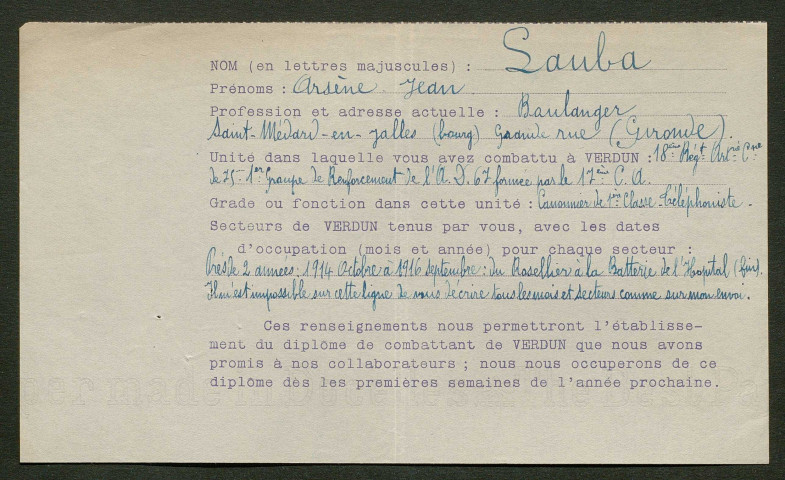 NOM (en lettres majuscules) : Lauba
Prénoms : Arsène Jean
Profession et adresse actuelle : Boulanger
Saint-Médard-en-Jalles (bourg) Grande rue (Gironde).
Unité dans laquelle vous avez combattu à VERDUN : 18ème Régt Artrie Cne
de 75 - 1er Groupe de Renforcement de l'A. D. 67 formée par le 17ème C. A.
Grade ou fonction dans cette unité : Canonnier de 1ère Classe - Téléphoniste.
Secteurs de VERDUN tenus par vous, avec les dates
d'occupation (mois et année) pour chaque secteur :
Près de 2 années : 1914 Octobre à 1916 septembre : du Rosellier à la Batterie de l'Hopital (fin).
Il m'est impossible sur cette ligne de vous décrire tous les mois et secteurs comme sur mon envoi.
Ces renseignements nous permettront l'établisse-
ment du diplôme de combattant de VERDUN que nous avons
promis à nos collaborateurs ; nous nous occuperons de ce
diplôme dès les premières semaines de l'année prochaine.